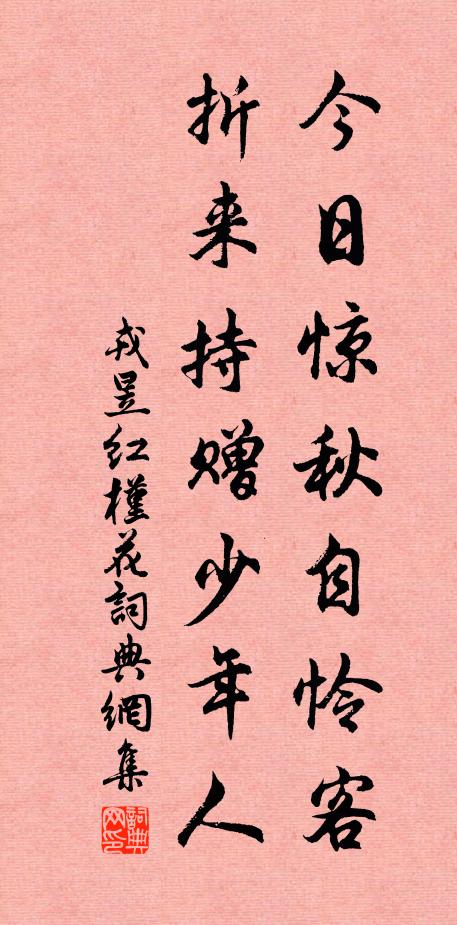 今日惊秋自怜客
折来持赠少年人
戎昱红槿花詞典網集
詞典网印